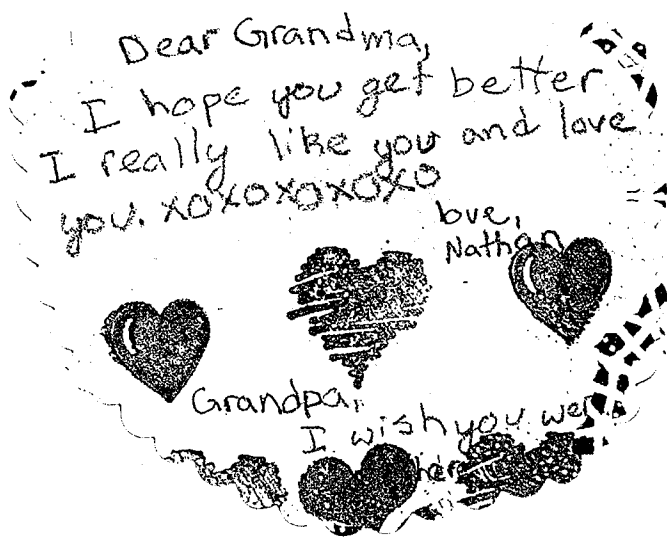 Dear Grandma,
I hope you get better
I really like you and love
you. xoxoxoxoxo
love,
Nathan
Grandpa,
I wish you